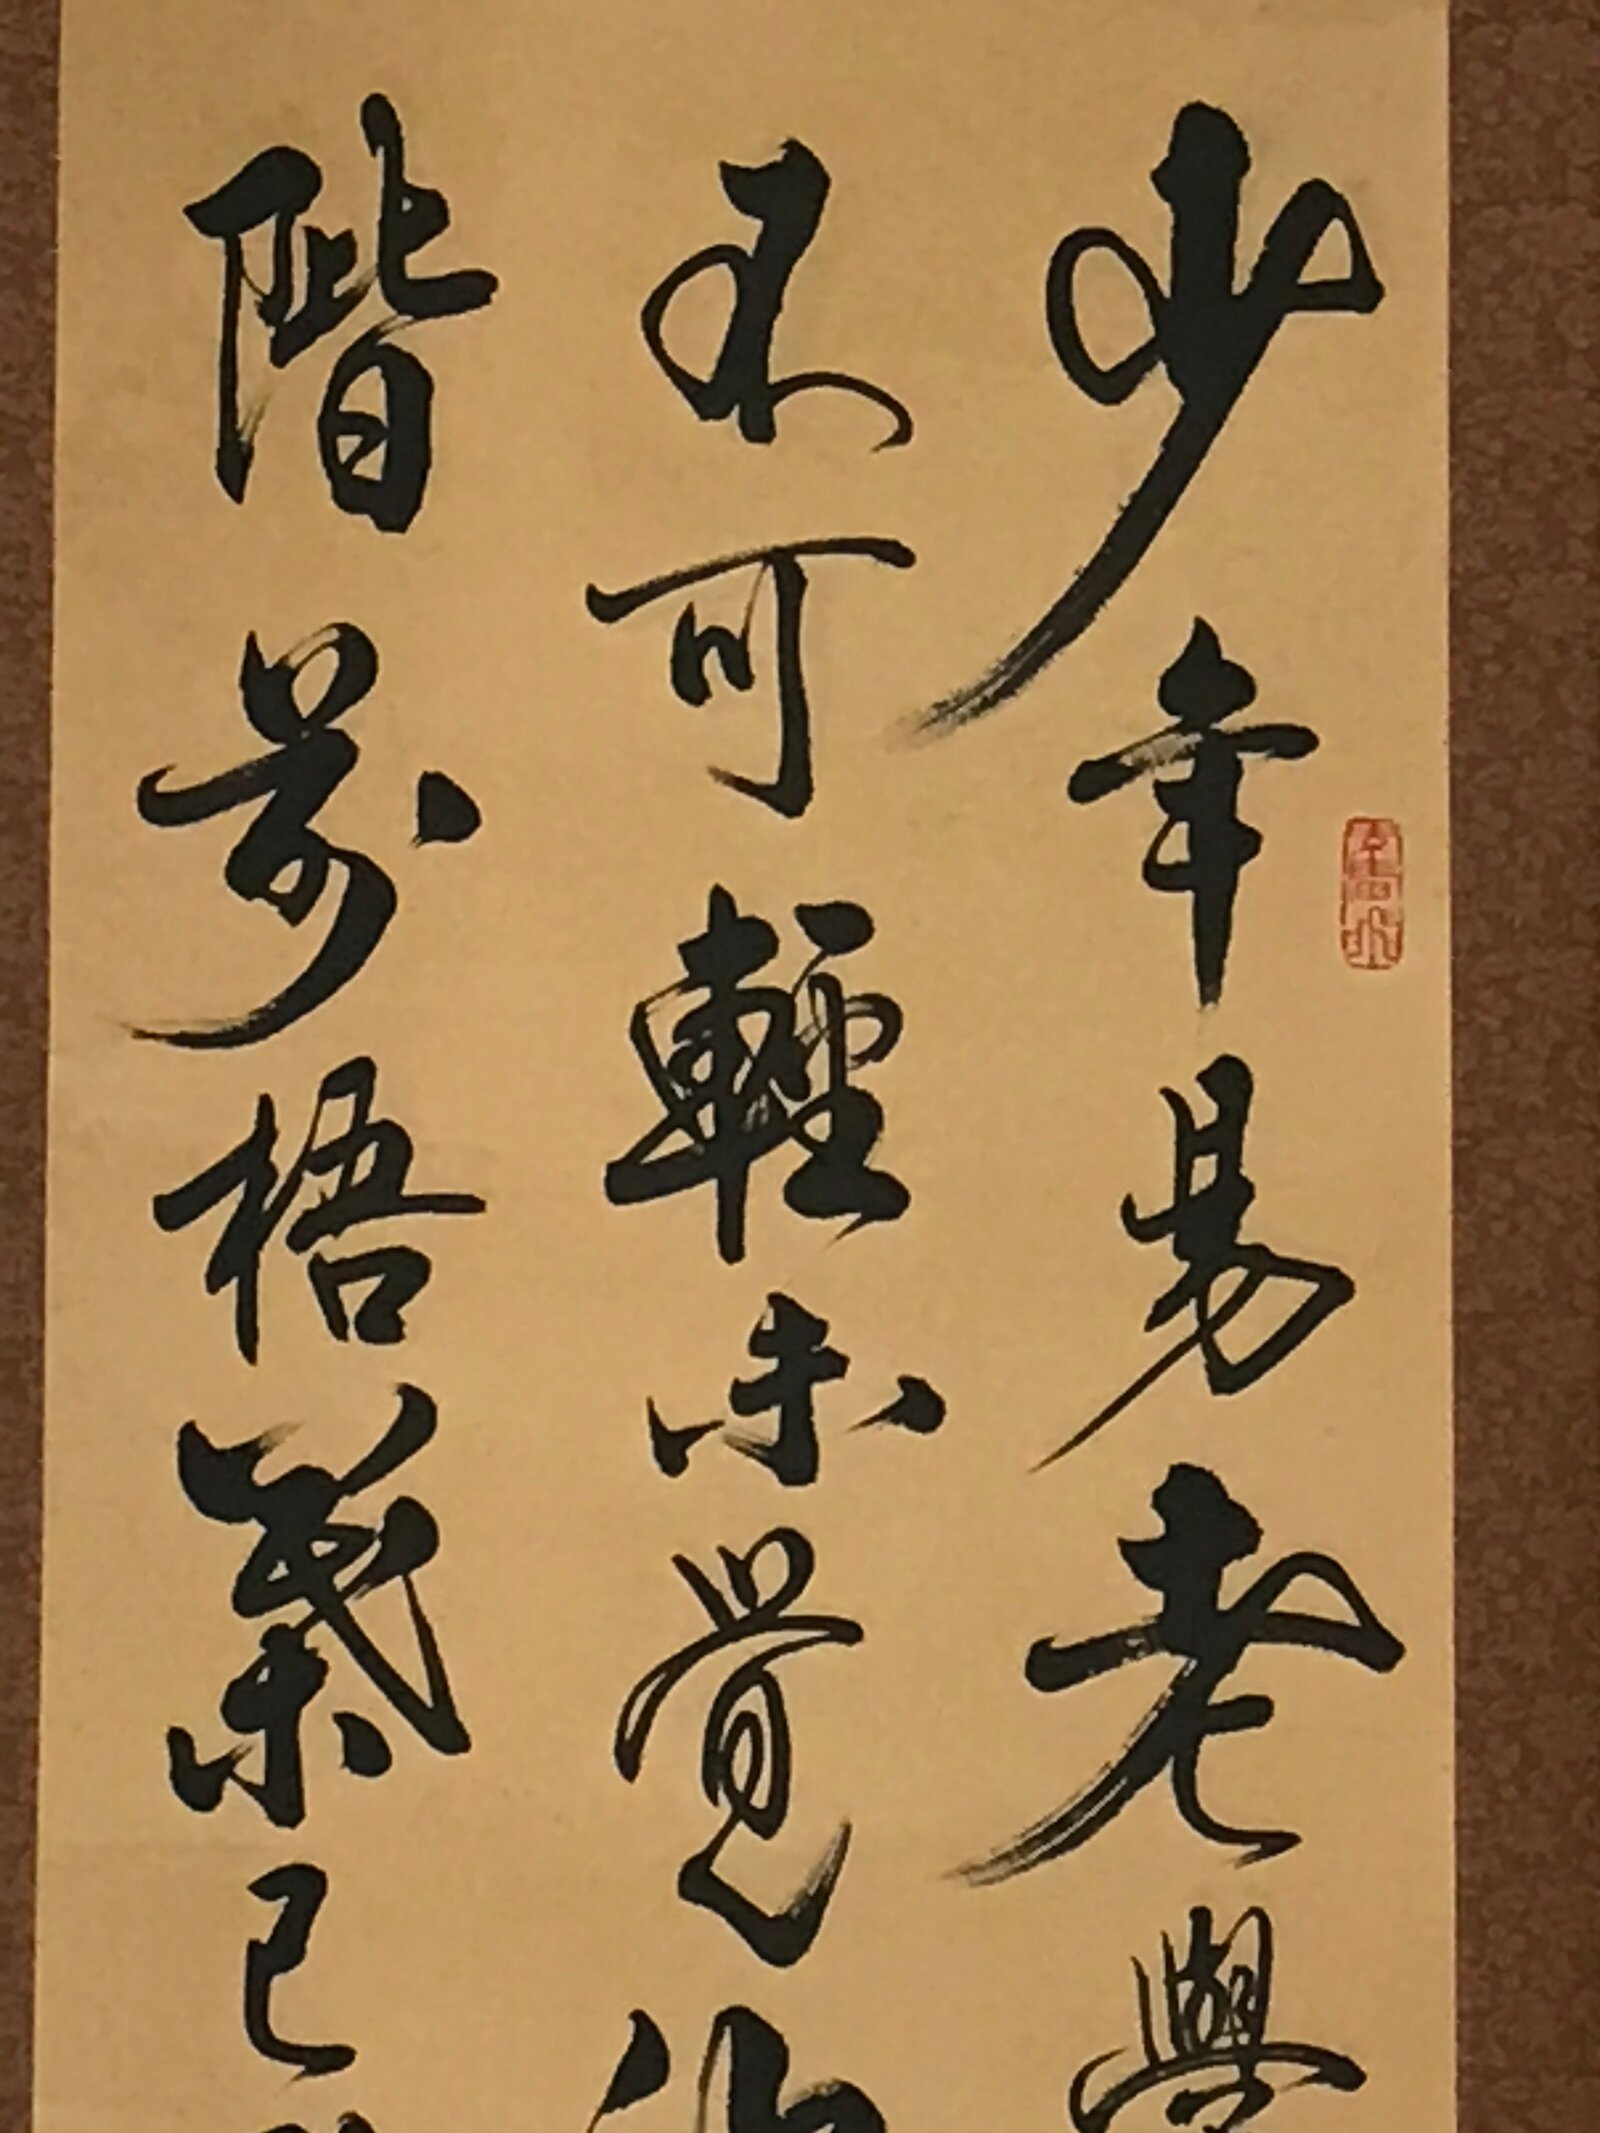 少年易老學
不可輕未覺池
階前梧葉已